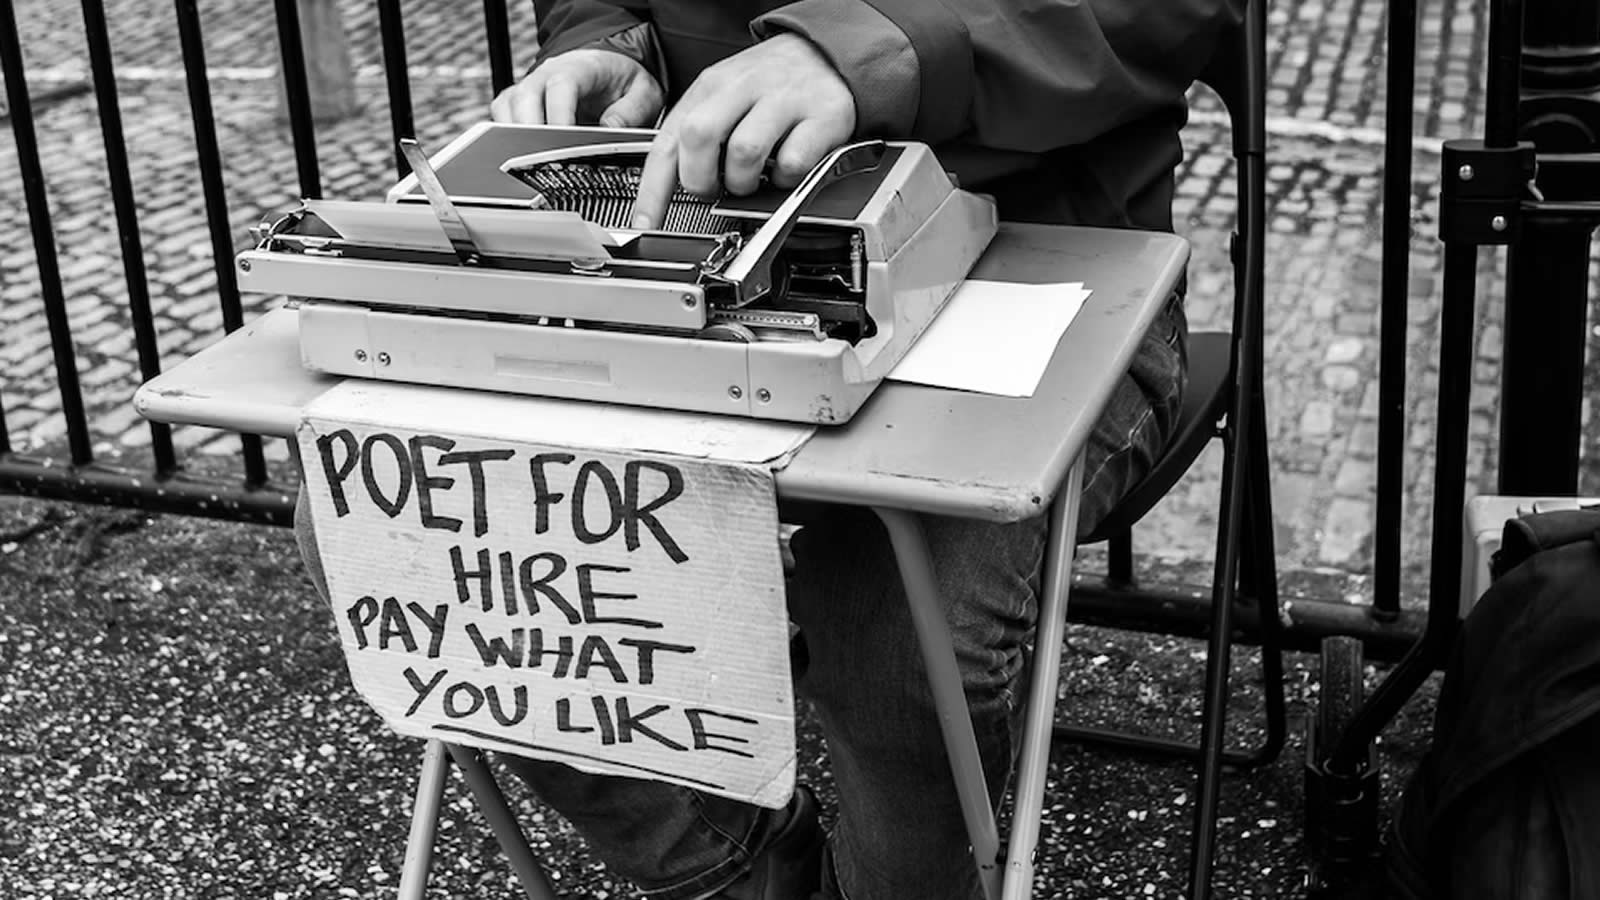 POET FOR
HIRE
PAY WHAT
YOU LIKE